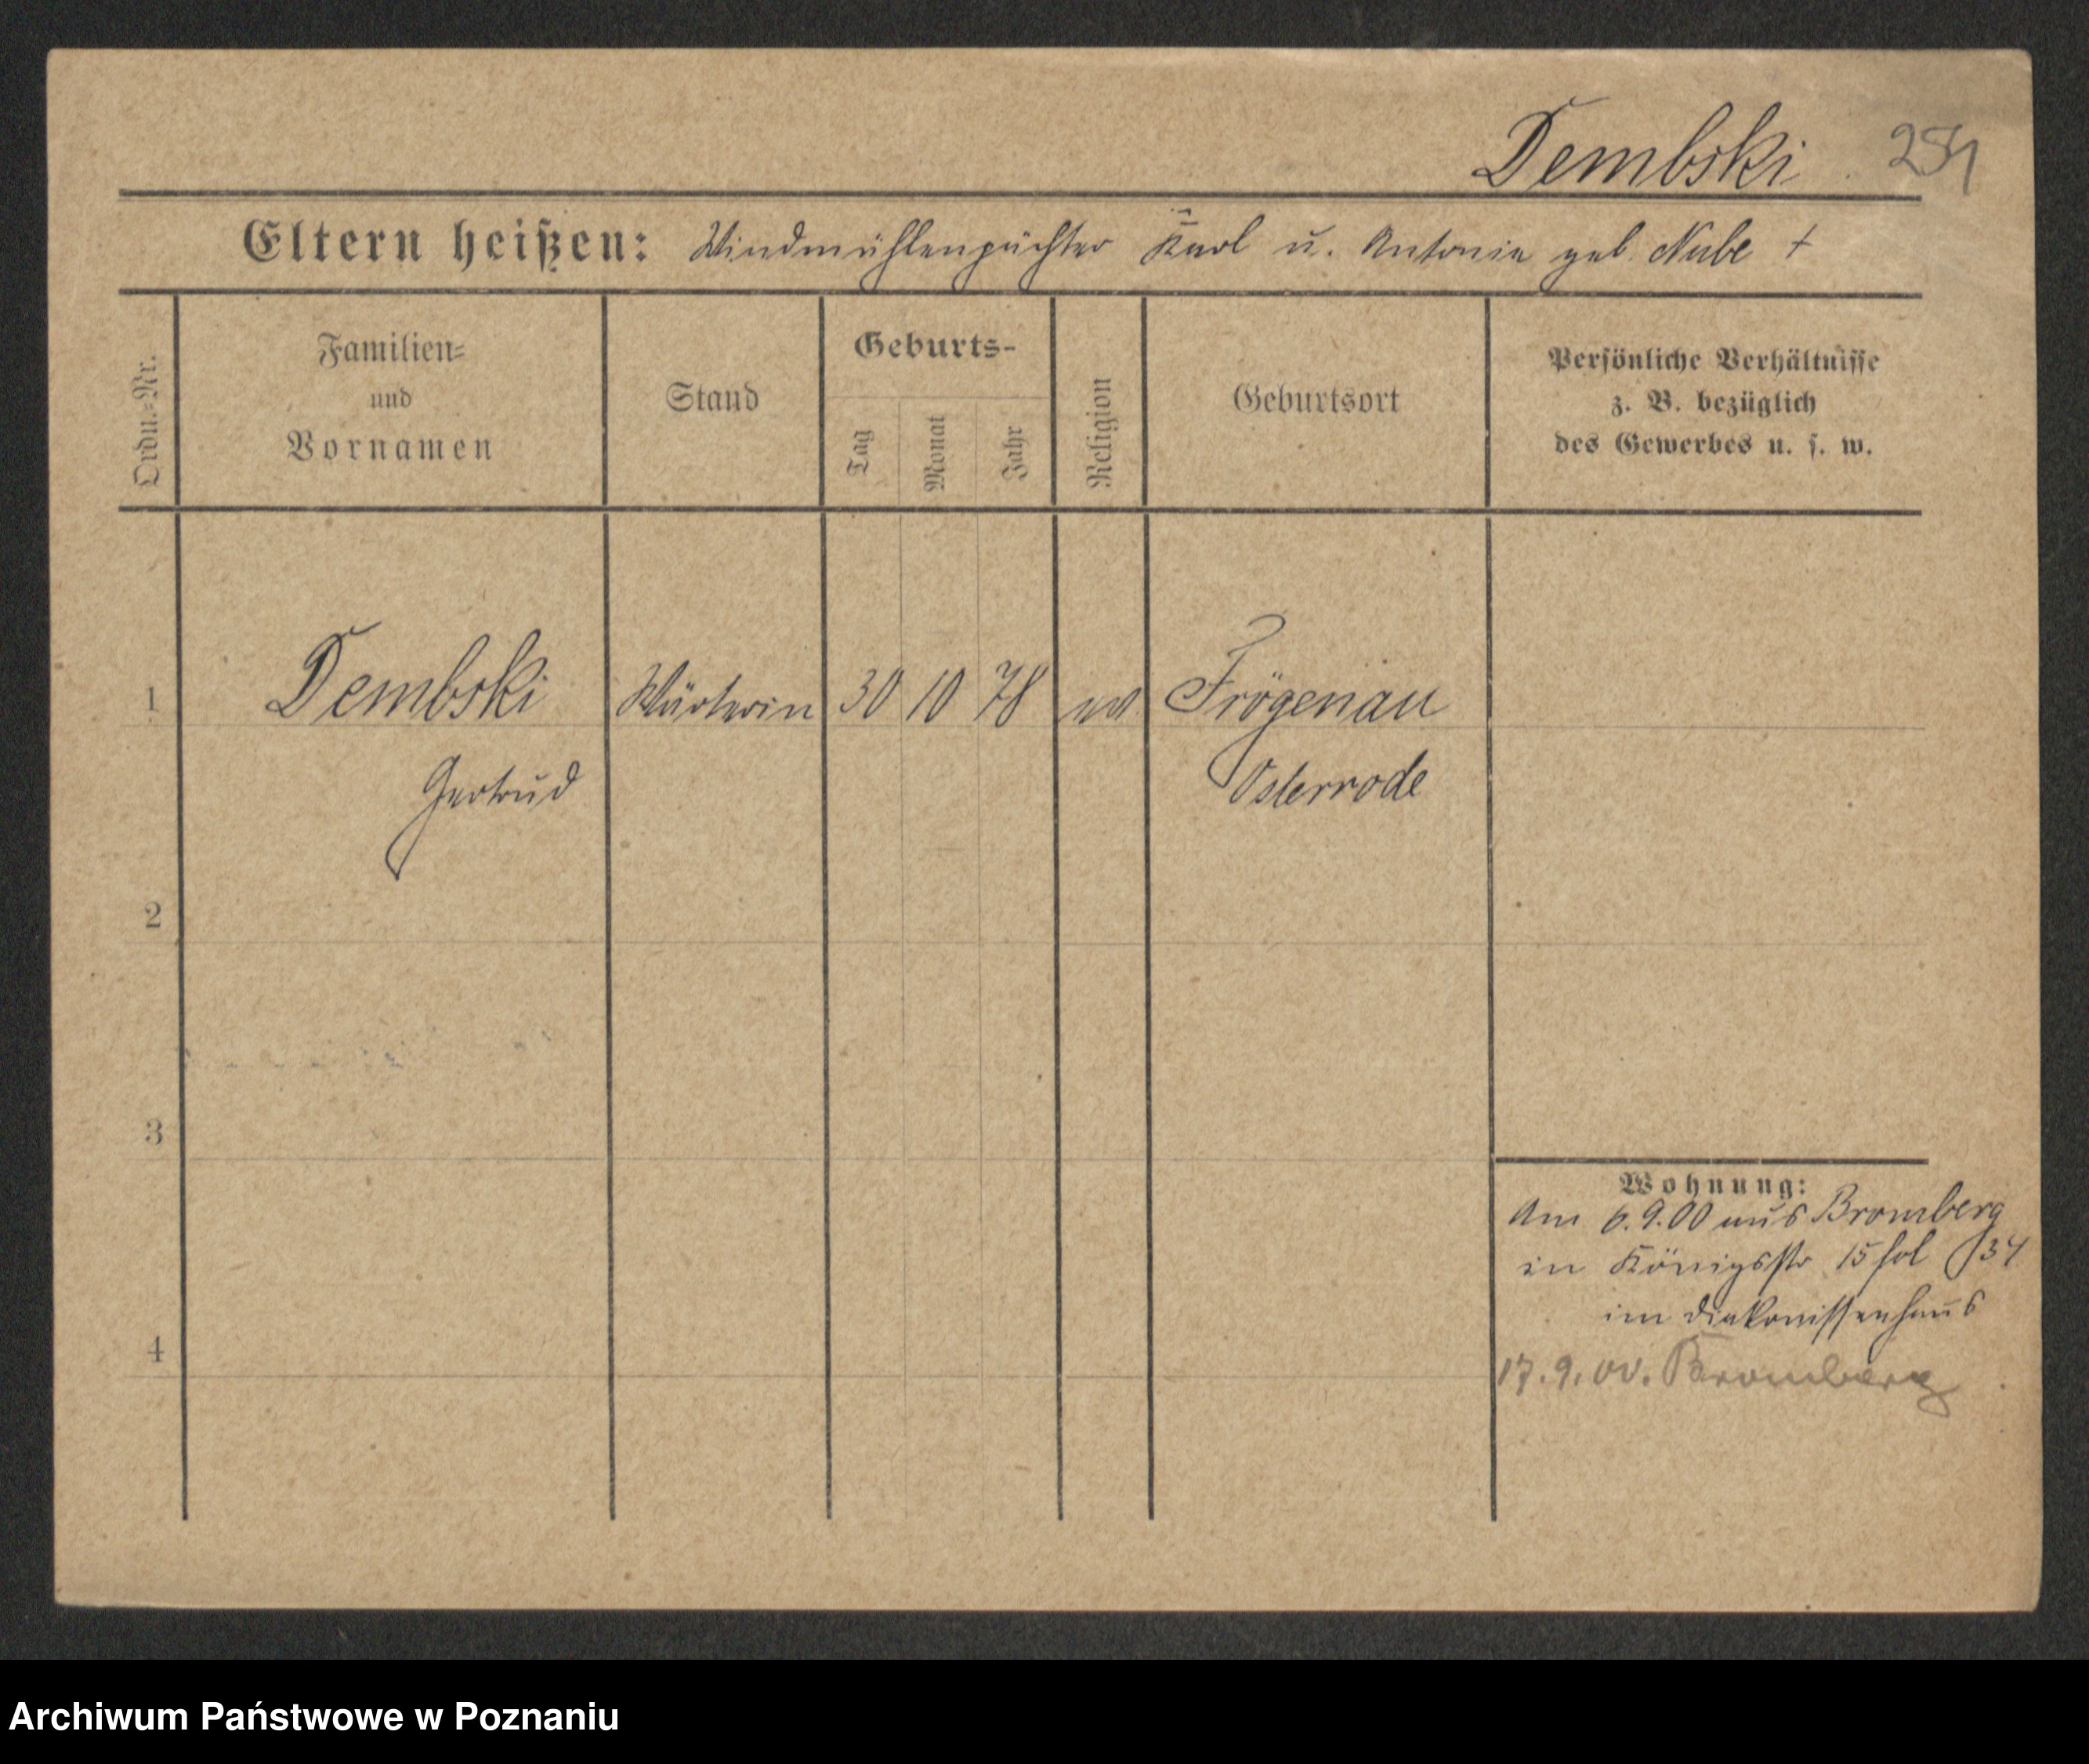 Dembski 254
Eltern heißen: Windmühlenpächter Karl u. Antonie geb. Nube †
Ordn.-Nr.
Familien-
und
Vornamen
Stand
Geburts-
Tag
Monat
Jahr
Religion
Geburtsort
Persönliche Verhältnisse
z. B. bezüglich
des Gewerbes u. s. w.
1 Dembski Wärterin 30 10 78 ev. Frögenau
Gertrud Osterrode
2
3
Wohnung:
Am 6.9.00 aus Bromberg
in Königsstr 15 fol 134
im Diakonissenhaus
4
17.9.00. Bromberg
Archiwum Państwowe w Poznaniu